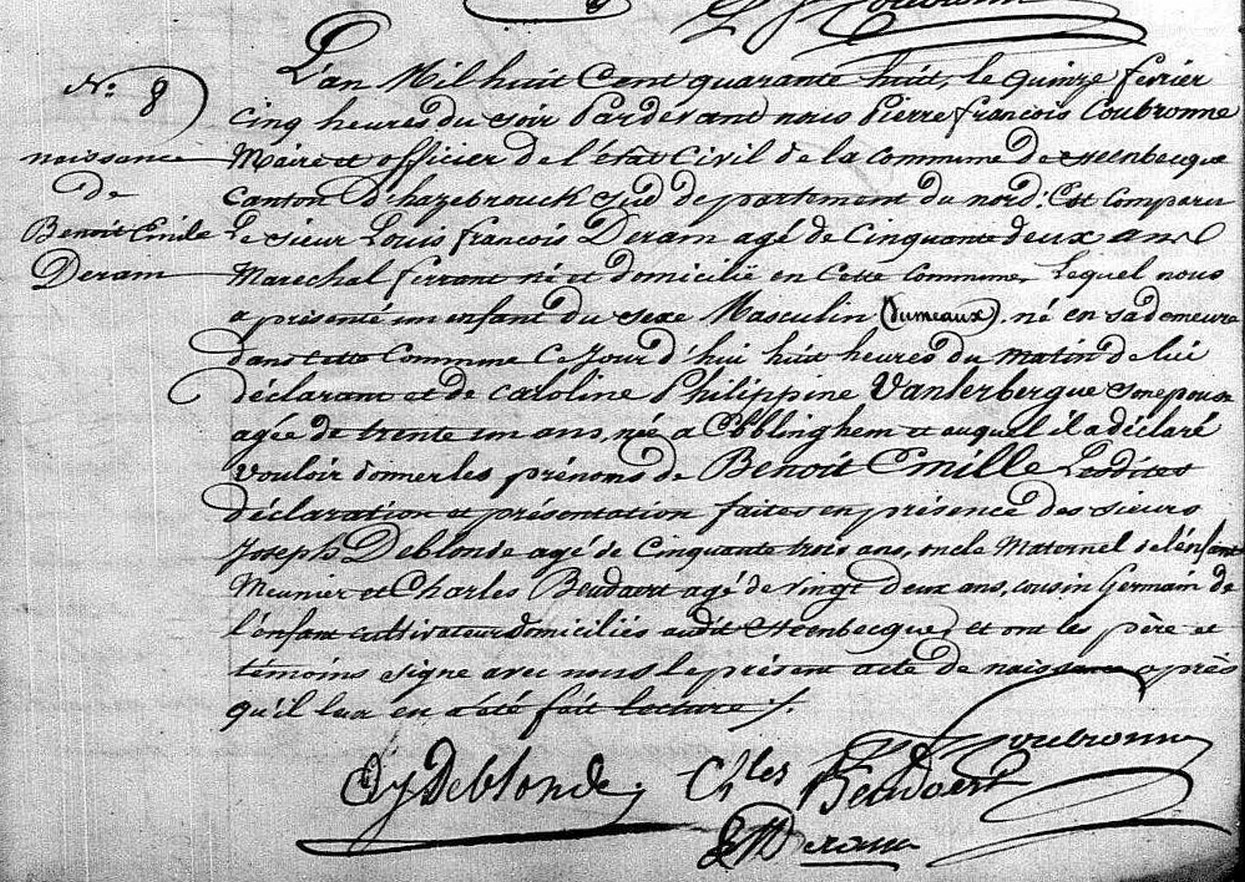 L'an Mil huit Cent quarante huit, le quinze fevrier
N.º 8
cinq heures du soir Pardevant nous Pierre françois Coubronne
naissance
Maire et officier de l'état Civil de la commune de Steenbecque
de
canton D'hazebrouck sud departement du nord: Est comparu
Benoit Emile
le sieur Louis francois Deram agé de Cinquante deux ans
Deram
Marechal ferrant né et domicilié en Cette Commune, Lequel nous
a présenté un enfant du sexe Masculin (Jumeaux). né en sa demeure
dans cette Commune Ce Jour d'hui huit heures du matin de lui
déclarant et de Caroline Philippine Vanterbergue son epouse
agée de trente un ans, née a Ebblinghem et auquel il a déclaré
vouloir donner les prénoms de Benoit Emille Lesdites
déclaration et présentation faites en présence des sieurs
Joseph Deblonde agé de Cinquante trois ans, oncle Maternel de l'enfant
Meunier et Charles Beudaert agé de vingt deux ans, cousin Germain de
l'enfant cultivateur domiciliés audit Steenbecque, et ont les père et
témoins signe avec nous le présent acte de naissance après
qu'il leur en a été fait lecture ./.
Coubronne
Deblonde Ch les Beudaert
Deram